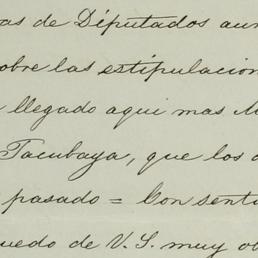 as de Diputados aun
obre las estipulacion
llegado aqui mas
Tacubaya, que los
pasado = Con senti
uedo de V. S. muy ob